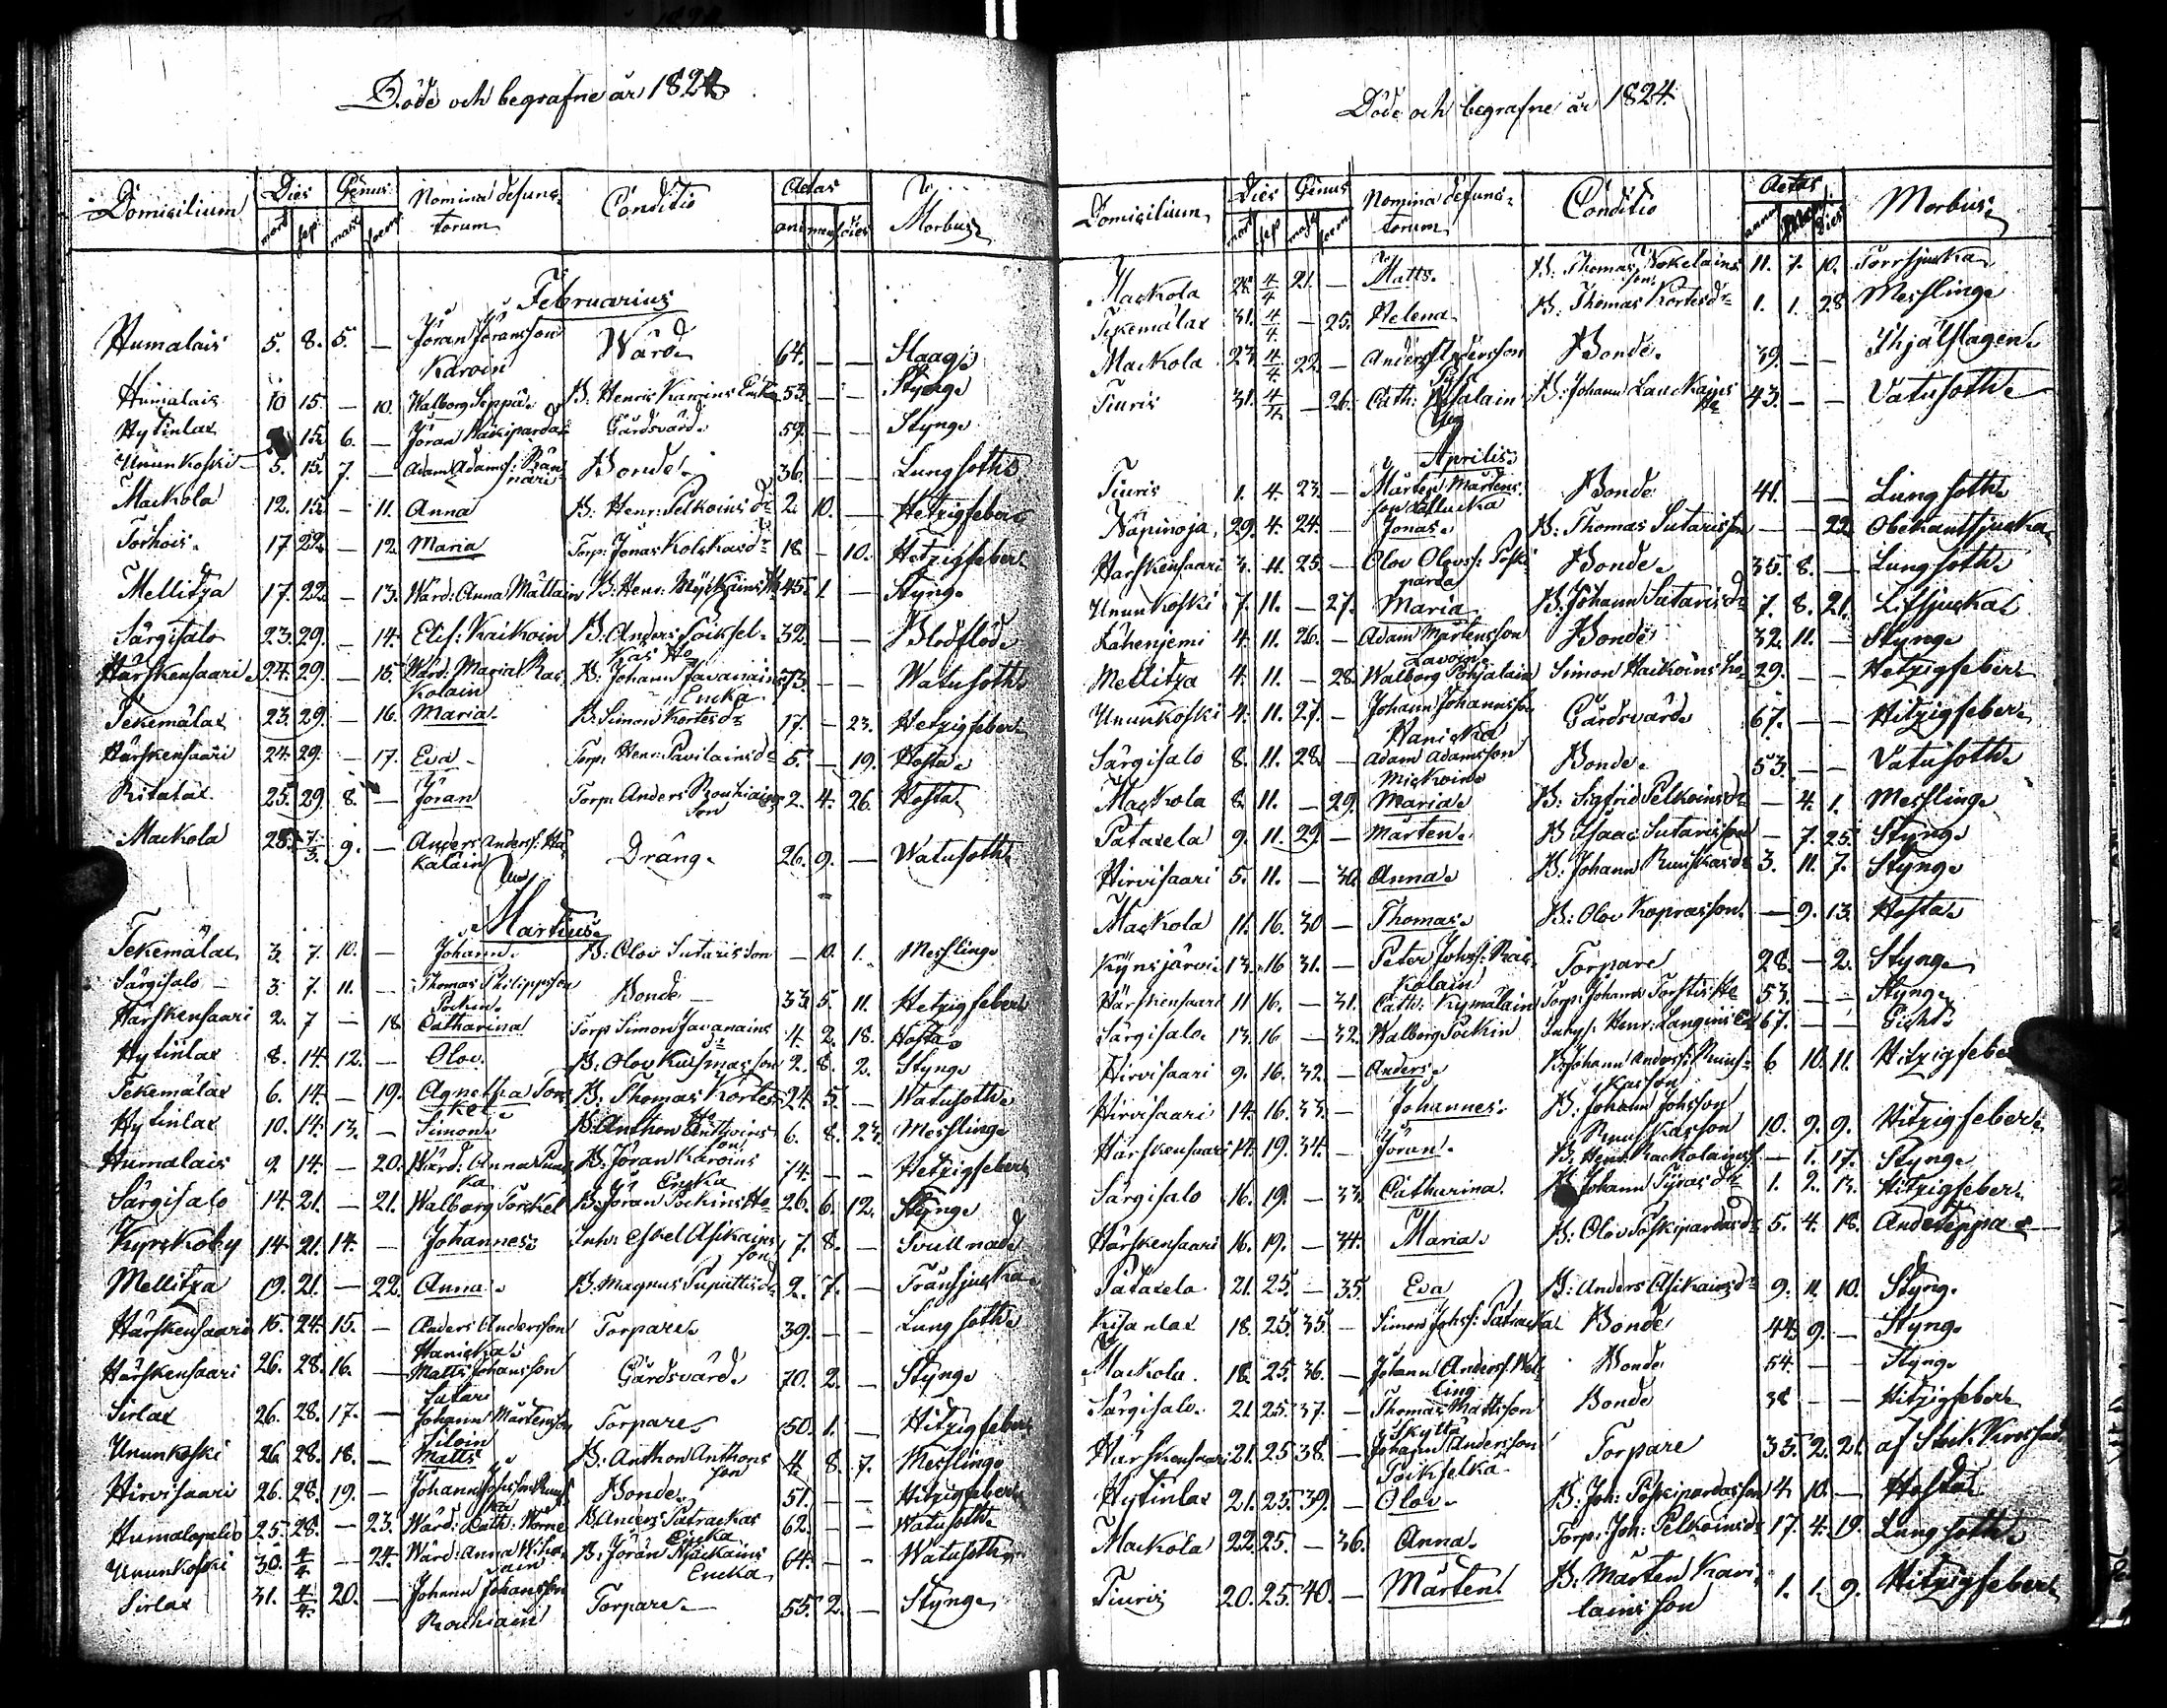 Döde och begrafne år 1824
Domicilium Dies Genus Nomina defunctorum Conditio Aetas Morbus
mort sep. masc. foem. ani mens dies
Februarius
Humalais 5. 8. 5. — Jöran Jöransson Karvin Wärd. 64. — — Slaag.
Humalais 10 15. — 10. Walborg Seppä. B: Henric Karvins Enka 53. — — Styng.
Hytinlax 15. 6. — Jöran Gårdsvärd. 59. — — Styng.
Ununkoski 5. 15. 7. — Adam Adamss: Bonde. 36. — — Lungsoth.
Mackola 12. 15. — 11. Anna B: Henr: Pelkoins dr 2. 10. — Hetzigfeber.
Torhois. 17 22. — 12. Maria Torp: Jonas Kolskas dr 18 — 10. Hetzigfeber.
Mellitza 17. 22. — 13. Wärd: Anna Mattain B: Henr: 45. 1 — Styng.
Särgisalo 23. 29. — 14. Elis: Kaikoin B. Anders Poikselkäs Ho 32. — — Blodflöd.
Härskensaari 24. 29. — 15. Wärd. Maria Rackolain B: Johann Javanains Encka 73. — — Watusoth.
Tekemälax 23. 29. — 16. Maria. B. Simon Kortes dr 17. — 23. Hetzigfeber.
Härskensaari 24. 29. — 17. Eva. Torp: Henr: Pavilains dr 5. — 19. Hosta.
Ritalax. 25. 29. 8. — Jöran Torp: Anders Rouhiains son 2. 4. 26. Hosta.
Mackola 28. 7/3. 9. — Anders Anderss: Hakalain Dräng. 26. 9. — Watusoth.
Martius.
Tekemälax 3. 7. 10. — Johann. B: Olov Sutaris son — 10. 1. Messling.
Särgisalo 3. 7. 11. — Thomas Philippsson Pockin. Bonde 33 5. 11. Hetzigfeber.
Härskensaari 2. 7 — 18. Catharina Torp Simon Javanains dr 4. 2. 18. Hosta.
Hytinlax 8. 14. 12. — Olov. B. Olov Kuismas son 2. 8. 2. Styng.
Tekemälax 6. 14. — 19. Agnetha Torckel B. Thomas Kortes Ho 24. 5. — Watusoth.
Hytinlax 10. 14. 13. — Simon. B. Anthon Anttoins son 6. 8. 23. Messling.
Humalais 9. 14. — 20. Wärd: Anna B. Jöran Karvins Encka 74. — — Hetzigfeber
Särgisalo 14. 21. — 21. Walborg Torckel B: Jöran Pockins Ho 26. 6. 12. Styng.
Kyrckoby 14 21. 14. — Johannes. Inh: Eskel Asikains son 7. 8. — Svullnad.
Mellitza 19. 21. — 22. Anna. B. Magnus Puputtis dr 2. 7. — Trånsjucka.
Härskensaari 15. 24. 15. — Anders Andersson Hanicka. Torpare. 39. — — Lungsoth.
Härskensaari 26. 28. 16. — Matts Johansson Sutari Gårdsvärd. 70. 2. — Styng.
Sirlax 26. 28. 17. — Johann Mårtensson Siloin Torpare. 50. 1. — Hitzigfeber
Ununkoski 26. 28. 18. — Matts B: Anthon Anthons son 4. 8. 7. Messling.
Hirvisaari 26. 28. 19. — Johann Johsson Runska Bonde. 51. — — Hitzigfeber.
Humalapolio 25. 28. — 23. Wärd: Cath: Worne B. Anders Patrackas Encka 62. — — Watusoth.
Ununkoski 30. 4/4 — 24. Wärd: Anna B: Jöran Encka 64. — — Watusoth.
Sirlax 31. 4/4. 20. — Johann Johansson Rouhiain Torpare. 55. 2. — Styng.
Döde och begrafne år 1824
Domicilium Dies Genus Nomina defunctorum Conditio Aetas Morbus.
mort sep masc foem anni Mens Dies
Mackola 28. 4/4 21. — Matts. B: Thomas son 11. 7. 10. Torrsjucka
Tekemälax 31. 4/4. — 25. Helena. B: Thomas Kortes dr 1. 1. 28 Messling.
Mackola 27. 4/4. 22. — Anders Andersson Bonde. 39. — — Ihjälslagen.
Tiuris 31. 4/4. — 26. Cath: B: Johann Lauckains Ho 43. — — Vatusoth.
Aprilis.
Tiuris 1. 4. 23. — Mårten Mårtensson Bonde 41. — — Lungsoth.
Näpinoja 29. 4. 24. — Jonas. B: Thomas Sutaris son — — 22 Obekantsjucka
Härskensaari 3. 11. 25. — Olov Olovss: Poskiparta Bonde. 35. 8. — Lungsoth.
Ununkoski 7. 11. — 27. Maria B: Johann Sutaris dr 7. 8. 21. Lifsjucka
4. 11. 26. — Adam Mårtensson Bonde 32. 11. — Styng.
Mellitza 4. 11. — 28. Walborg Pohjalain Simon Haikoins Ho 29. — — Hetzigfeber.
Ununkoski 4. 11. 27. — Johann Johannsson Hanicka Gårdsvärd. 67. — — Hitzigfeber.
Särgisalo 8. 11. 28. — Adam Adamsson Mickoin. Bonde. 53. — — Vatusoth.
Mackola 8. 11. — 29. Maria. B: Sigfrid Pelkoins dr — 4. 1. Messling.
Pataxela 9. 11. 29. — Mårten. B: Isaac Sutaris son — 7. 25. Styng.
Hirvisaari 5. 11. — 30. Anna. B: Johann Runskas dr 3. 11. 7. Styng.
Mackola 11. 16. 30 — Thomas. B: Olov Kopras son. — 9. 13. Hosta.
Kynsjärvi 13. 16 31. — Peter Johss: Rackolain Torpare 28. — 2. Styng
Härskensaari 11 16. — 31. Cath: Kymäläin Torp: Johann Torstis Ho 53. — — Styng.
Särgisalo. 13. 16 — 32. Walborg Pockin Inhys: Henr: Langins 67. — — Gicht.
Hirvisaari 9. 16. 32. — Anders. B: Johann Anderss: Runskas son 6 10. 11. Hitzigfeber
Hirvisaari 14. 16. 33. — Johannes. B: Johann Johsson Runskas son 10. 9. 9. Hitzigfeber.
Härskensaari 14. 19. 34. — Jöran. B: Henr: Rackolains s. — 1. 17. Styng.
Särgisalo 16. 19. — 33. Catharina. B: Johann Tyras dr 1. 2. 13. Hitzigfeber.
Härskensaari 16. 19. — 34. Maria. B: Olov Poskipartas dr 5. 4. 18. Andeteppa
Pataxela 21. 25. — 35. Eva B: Anders Asikains dr 9. 11. 10. Styng.
Kisanlax 18. 25. 35. — Simon Johss: Patracka Bonde 44. 9. — Styng.
Mackola. 18. 25. 36. — Johann Anderss. Bonde 54. — — Styng.
Särgisalo. 21 25. 37. — Thomas Mattsson Skyttä Bonde 38 — — Hitzigfeber.
Härskensaari 21. 25 38. — Johann Andersson Poikselkä Torpare 33. 2. 21. af
Hytinlax 21. 25. 39. — Olov. B: Joh: Poskipartas son 4. 10. — Hosta
Mackola 22. 25. — 36. Anna. Torp: Joh: Pelkoins dr 17. 4. 19. Lungsoth.
Tiuris 20. 25. 40. — Mårten B: Mårten Kavilains son 1. 1. 9. Hitzigfeber.